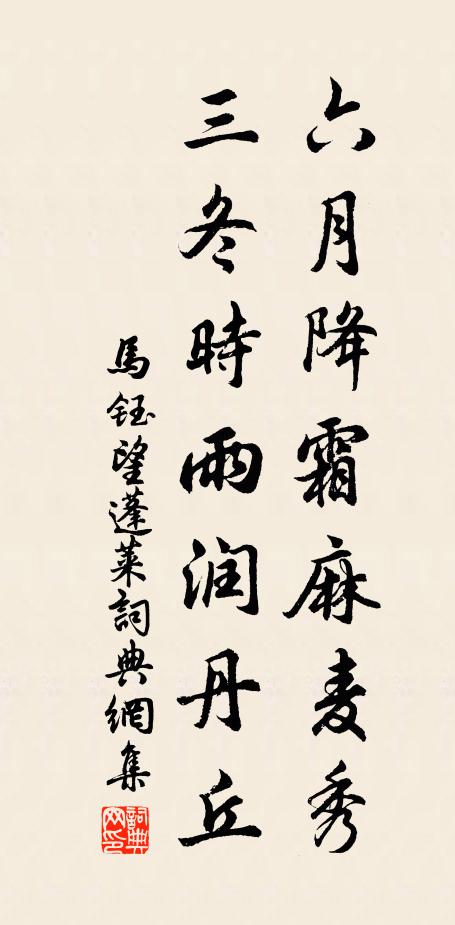 六月降霜麻麦秀
三冬時雨润丹丘
馬鈺望蓬萊詞典網集
詞典网印